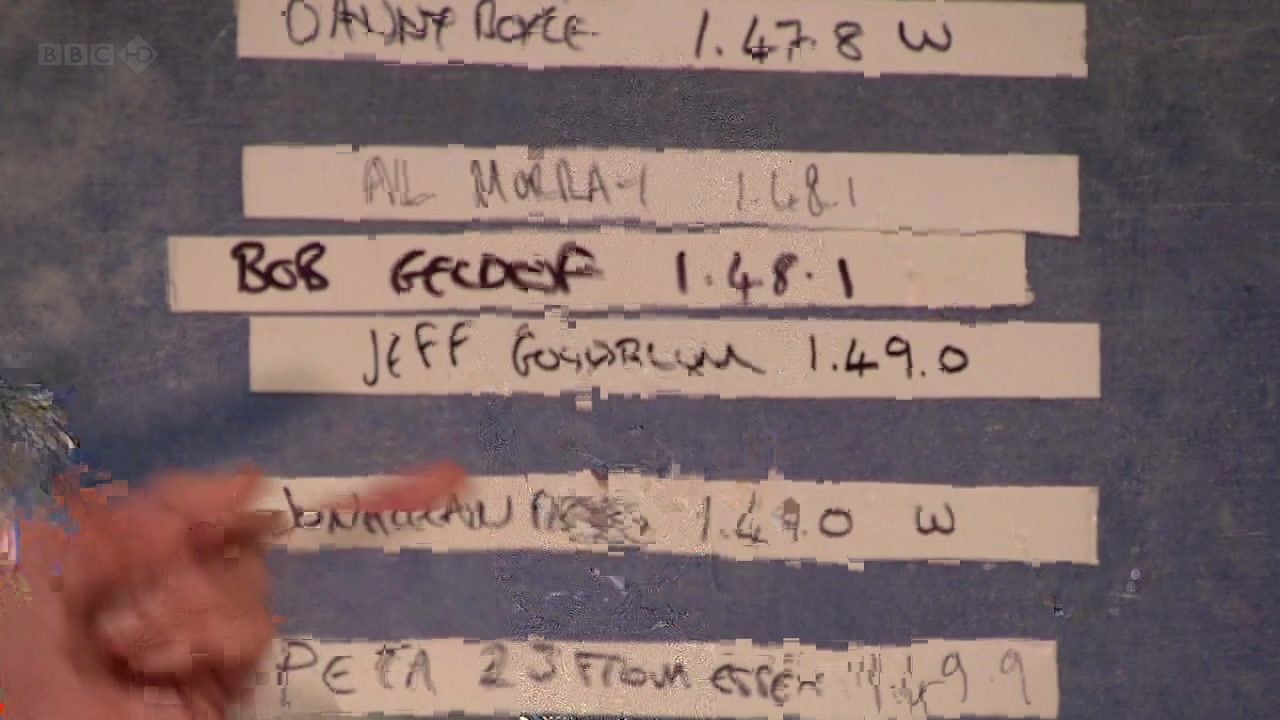 BBC HD
DANNY BOYLE 1.47.8 W
AL MURRAY 1.48.1
BOB GELDOF 1.48.1
JEFF GOLDBLUM 1.49.0
JONATHAN ROSS 1.49.0 W
PETA 23 FROM ESSEX 9.9